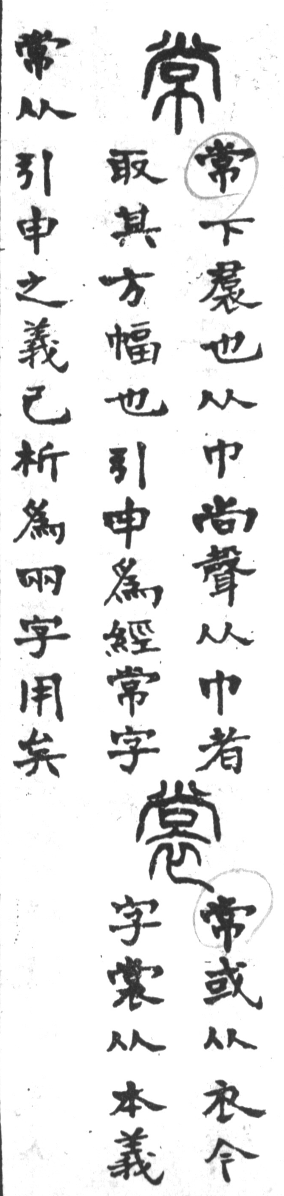 常
常下裠也从巾尚聲从巾者
取其方幅也引申爲經常字
裳
常或从衣今
字裳从本義
常从引申之義已析爲兩字用矣